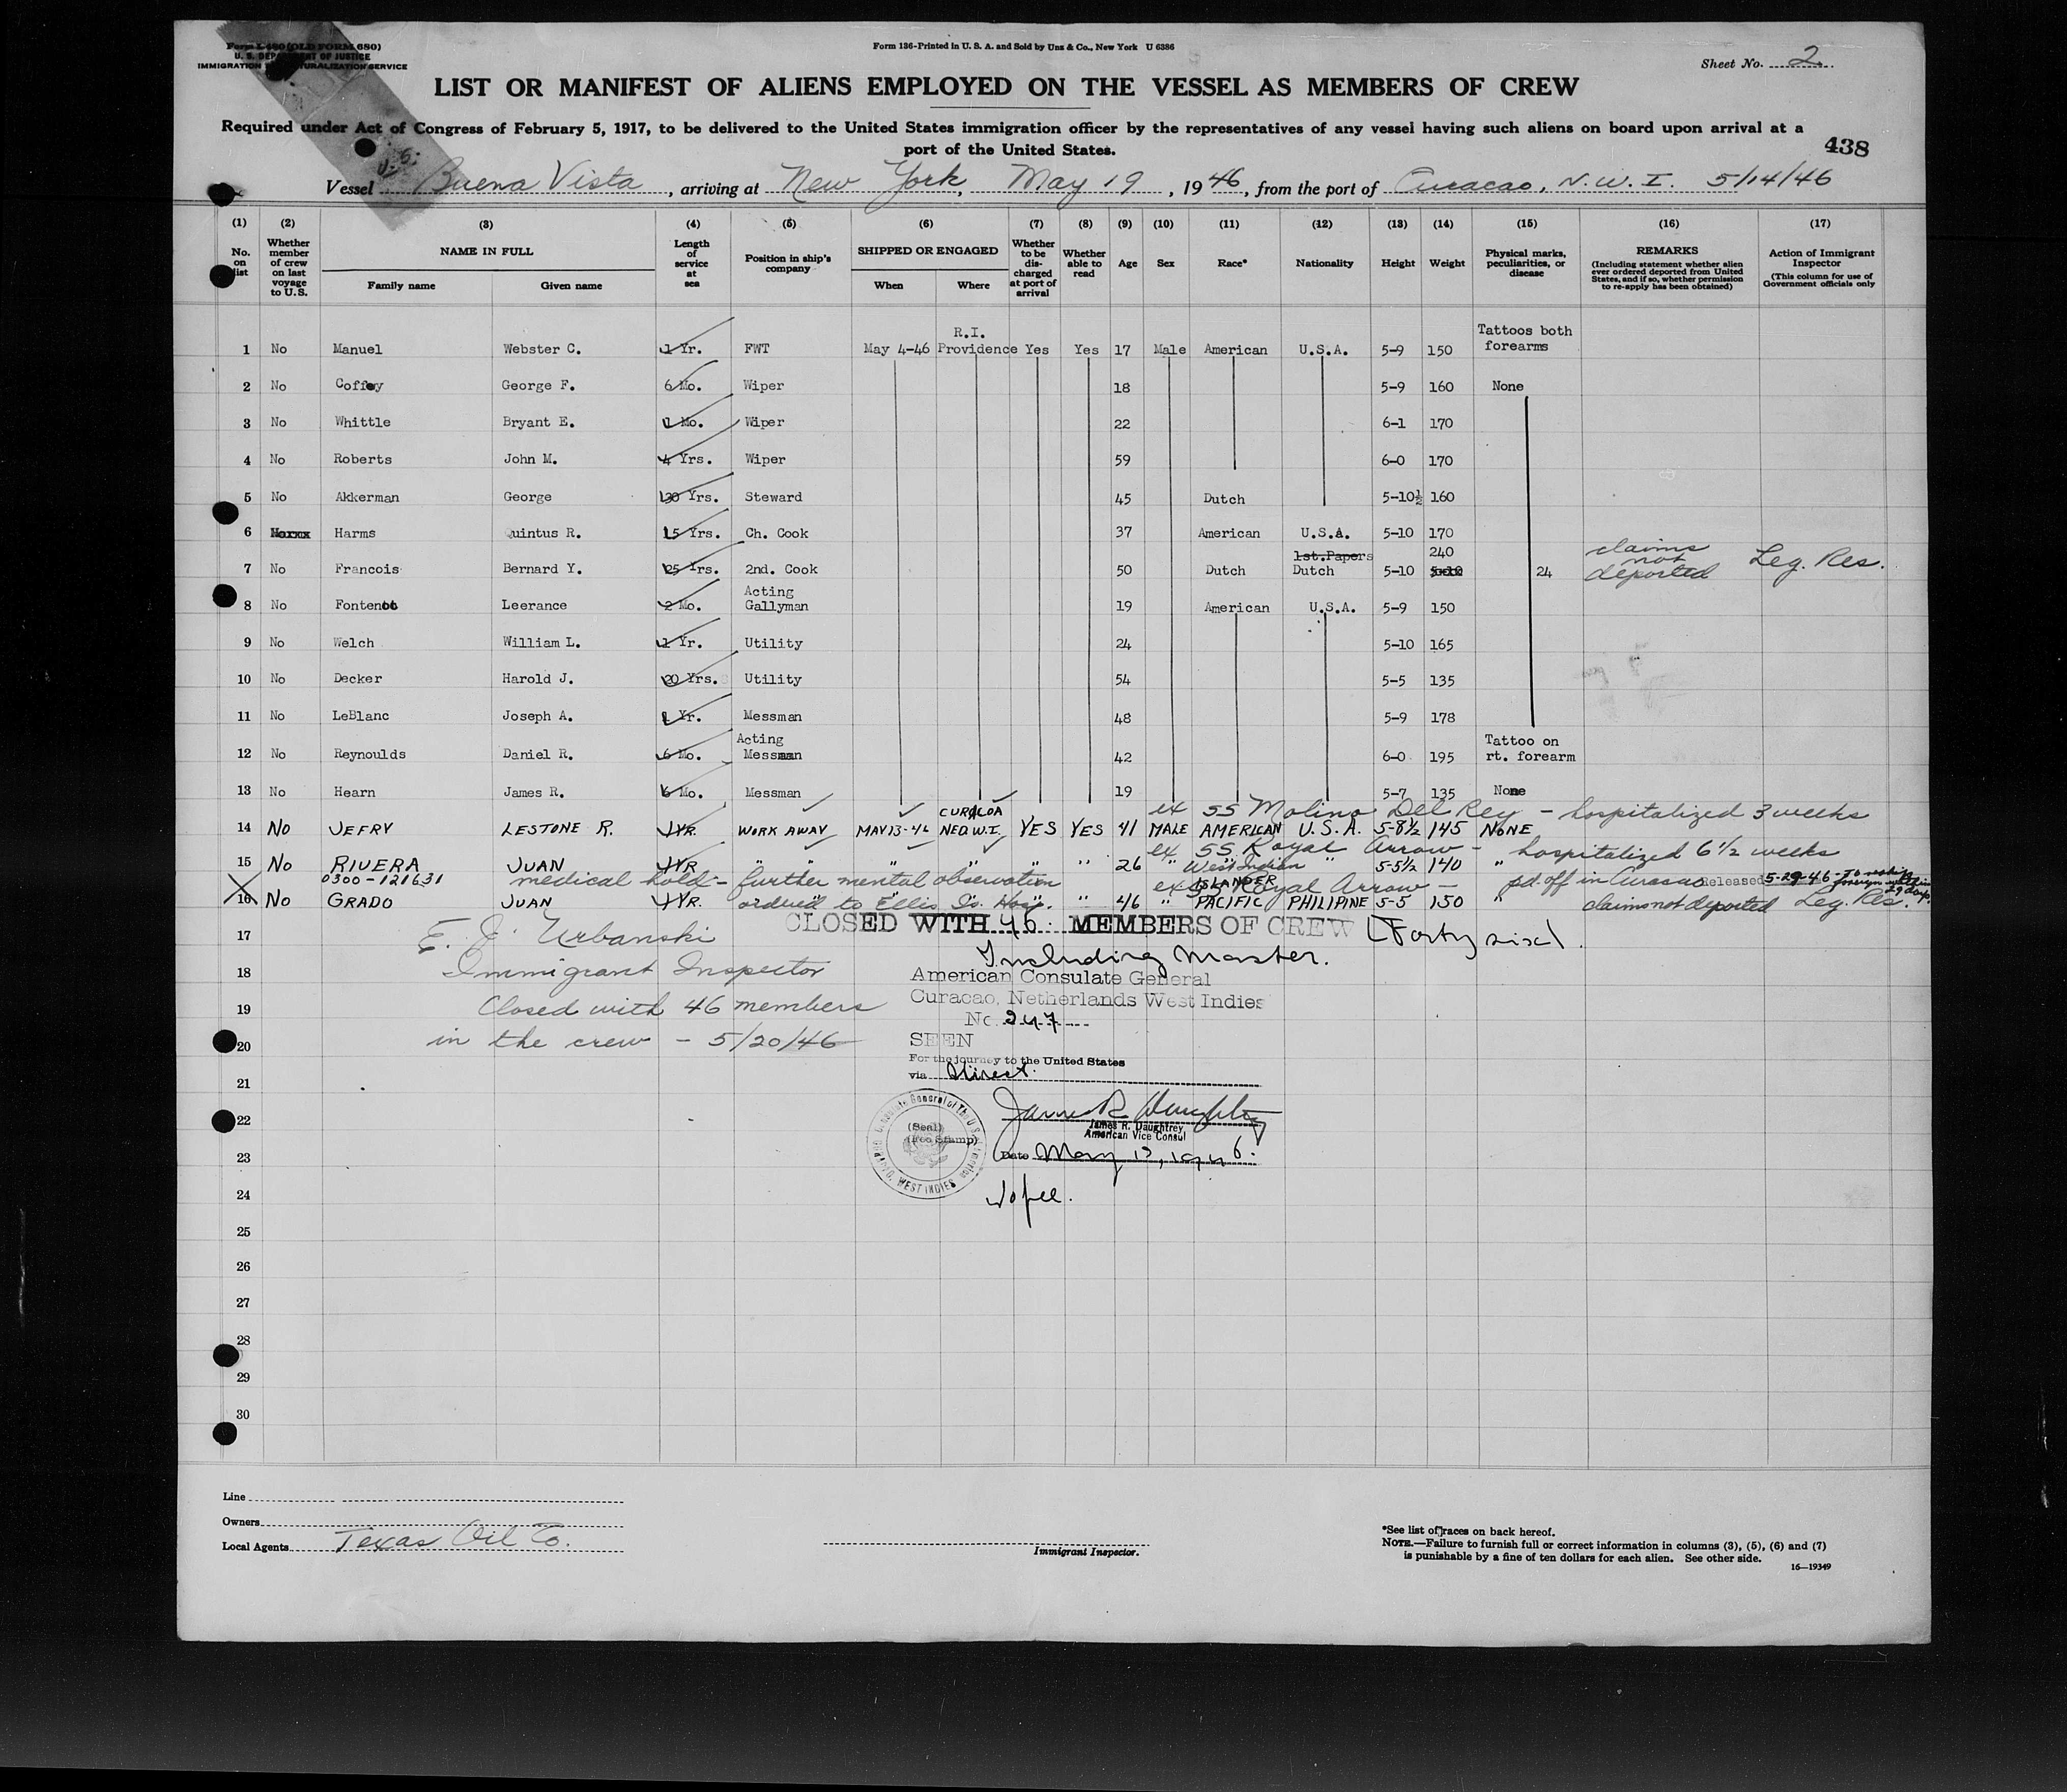 Form I-480 (OLD FORM 680)
U. S. DEPARTMENT OF JUSTICE
IMMIGRATION NATURALIZATION SERVICE
Form 136-Printed in U. S. A. and Sold by Unz & Co., New York U 6386
Sheet No. 2
LIST OR MANIFEST OF ALIENS EMPLOYED ON THE VESSEL AS MEMBERS OF CREW
Required under Act of Congress of February 5, 1917, to be delivered to the United States immigration officer by the representatives of any vessel having such aliens on board upon arrival at a
port of the United States.
438
U.S.
Vessel Buena Vista, arriving at New York, May 19, 1946, from the port of Curacao, N.W.I. 5/14/46
(1) (2) (3) (4) (5) (6) (7) (8) (9) (10) (11) (12) (13) (14) (15) (16) (17)
No. on list
Whether member of crew on last voyage to U.S.
NAME IN FULL
Family name Given name
Length of service at sea
Position in ship's company
SHIPPED OR ENGAGED
When Where
Whether to be discharged at port of arrival
Whether able to read
Age
Sex
Race*
Nationality
Height
Weight
Physical marks, peculiarities, or disease
REMARKS
(Including statement whether alien ever ordered deported from United States, and if so, whether permission to re-apply has been obtained)
Action of Immigrant Inspector
(This column for use of Government officials only
R.I. Tattoos both
1 No Manuel Webster C. 1 Yr. FWT May 4-46 Providence Yes Yes 17 Male American U.S.A. 5-9 150 forearms
2 No Coffey George F. 6 Mo. Wiper 18 5-9 160 None
3 No Whittle Bryant E. 1 Mo. Wiper 22 6-1 170
4 No Roberts John M. 4 Yrs. Wiper 59 6-0 170
5 No Akkerman George 30 Yrs. Steward 45 Dutch 5-10½ 160
6 Harms Quintus R. 15 Yrs. Ch. Cook 37 American U.S.A. 5-10 170
1st.Papers 240 claims not
7 No Francois Bernard Y. 25 Yrs. 2nd. Cook 50 Dutch Dutch 5-10 24 deported Leg. Res.
Acting
8 No Fontenot Leerance 2 Mo. Gallyman 19 American U.S.A. 5-9 150
9 No Welch William L. 1 Yr. Utility 24 5-10 165
10 No Decker Harold J. 20 Yrs. Utility 54 5-5 135
11 No LeBlanc Joseph A. 1 Yr. Messman 48 5-9 178
Acting Tattoo on
12 No Reynoulds Daniel R. 6 Mo. Messman 42 6-0 195 rt. forearm
13 No Hearn James R. 6 Mo. Messman 19 5-7 135 None
CURACOA ex SS Molino Del Rey - hospitalized 3 weeks
14 No JEFRY LESTONE R. 1 YR. WORK AWAY MAY 13-46 NED.W.I. YES YES 41 MALE AMERICAN U.S.A. 5-8½ 145 NONE
ex SS Royal Arrow - hospitalized 6½ weeks
15 No RIVERA JUAN 1 YR. " " " " " " 26 " West Indian " 5-5½ 140 "
0300-121631 medical hold - further mental observation ISLANDER ex SS Royal Arrow - pd. off in Curacao Released 5-29-46 - To reship foreign within 29 days.
16 No GRADO JUAN 1 YR. ordered to Ellis Is. Hosp. " " 46 " PACIFIC PHILIPINE 5-5 150 " claims not deported Leg. Res.
CLOSED WITH 46 MEMBERS OF CREW (Forty six)
17 E. J. Urbanski
Including Master.
18 Immigrant Inspector
American Consulate General
Curacao, Netherlands West Indies
19 Closed with 46 members
No. 247
20 in the crew - 5/20/46
SEEN
For the journey to the United States
via direct.
21
22
James R. Daughtrey
James R. Daughtrey
American Vice Consul
(Seal)
(Fee Stamp)
WEST INDIES
23
Date May 13, 1946.
24
No fee.
25
26
27
28
29
30
Line
Owners
Local Agents Texas Oil Co.
Immigrant Inspector.
*See list of races on back hereof.
NOTE.—Failure to furnish full or correct information in columns (3), (5), (6) and (7)
is punishable by a fine of ten dollars for each alien. See other side.
16—19349